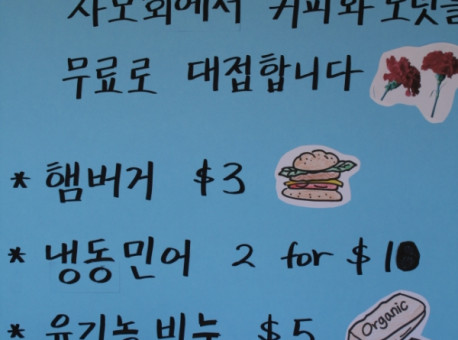 사모회에서 커피와 도넛을
무료로 대접합니다
* 햄버거 $3
* 냉동민어 2 for $10
* 유기농비누 $5
Organic